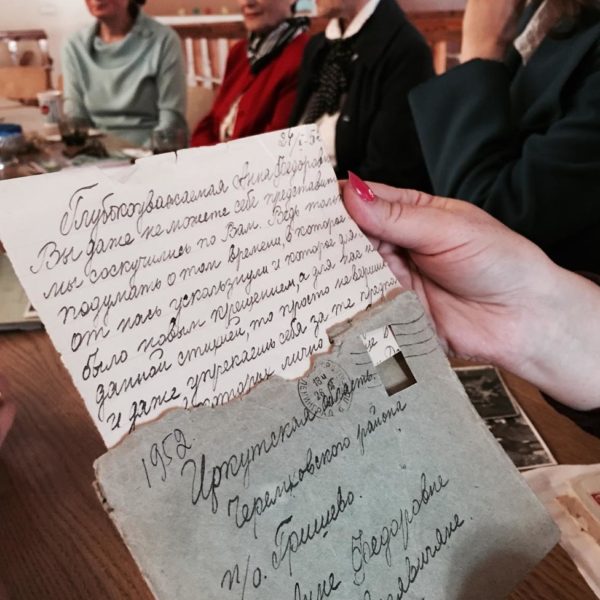 Глубокоуважаемая Анна Федоровна
Вы даже не можете себе представить
мы соскучились по Вам. Ведь только
подумать о том времени, о которое
от нась ускользнули и которое для
было новым крещением, а для нас
данной стихией, то просто не вериш
и даже упрекаешь себя за те
которых лично
1952.
Иркутская область.
Черемховского района
п/о. Гришево.
Анне Федоровне